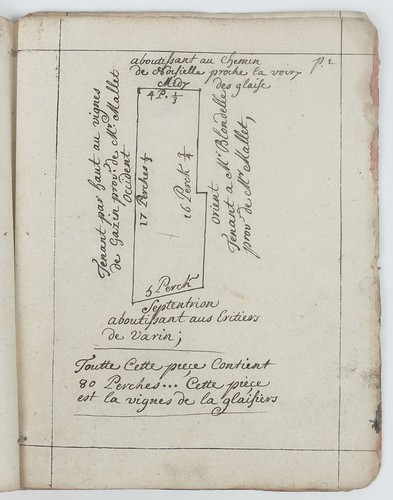 p. 2
aboutissant au Chemin
de Noisielle proche la voiry
Midy des glaise
4 P. 1/3
Tenant par haut au vignes
de Gazin prov. de Mr. Mallet
Occident
17 Perches 1/2
16 Perck 3/4
Orient
Tenant a Mr. Blondelle
prov. de Mr Mallet,
5 Perck
Septentrion
aboutissant aus Eritiers
de Varin;
Toutte Cette pieçe Contient
80 Perches... Cette pieçe
est la vignes de la glaisiers